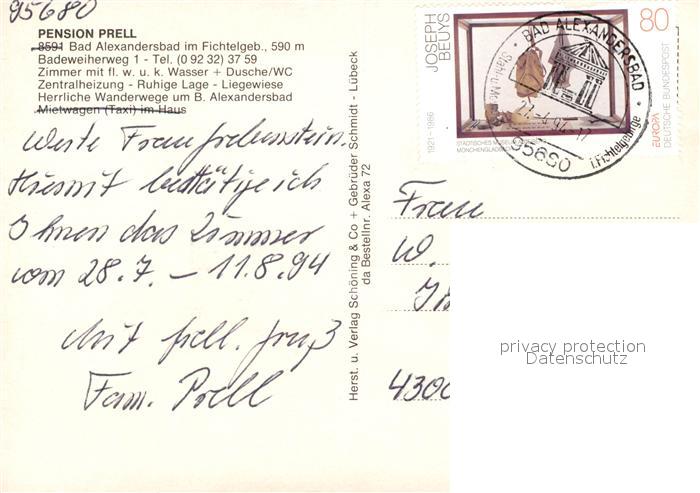 95680
PENSION PRELL
8591 Bad Alexandersbad im Fichtelgeb., 590 m
Badeweiherweg 1 - Tel. (0 92 32) 37 59
Zimmer mit fl. w. u. k. Wasser + Dusche/WC
Zentralheizung - Ruhige Lage - Liegewiese
Herrliche Wanderwege um B. Alexandersbad
Mietwagen (Taxi) im Haus
Werte Frau
Hiermit bestätige ich
Ihnen das Zimmer
vom 28.7. – 11.8.94
Mit frdl. Gruß
Fam. Prell
Herst. u. Verlag Schöning & Co + Gebrüder Schmidt - Lübeck
da Bestellnr. Alexa 72
JOSEPH
BEUYS
1921-1986
80
EUROPA
DEUTSCHE BUNDESPOST
STÄDTISCHES
MÖNCHENGLADB
BAD ALEXANDERSBAD
95680
i.Fichtelgebirge
Frau
W.
4300
privacy protection
Datenschutz